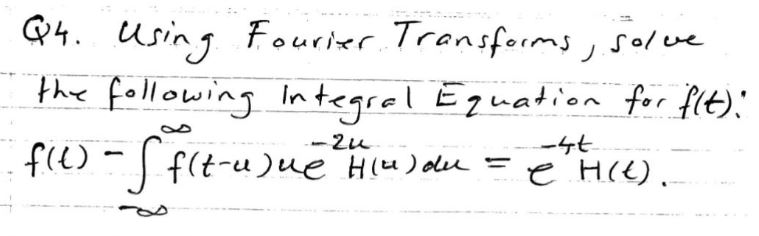 Q4. Using Fourier Transforms, solve
the following Integral Equation for f(t):
f(t) - ∫_{-∞}^{∞} f(t-u)ue^{-2u} H(u)du = e^{-4t} H(t).